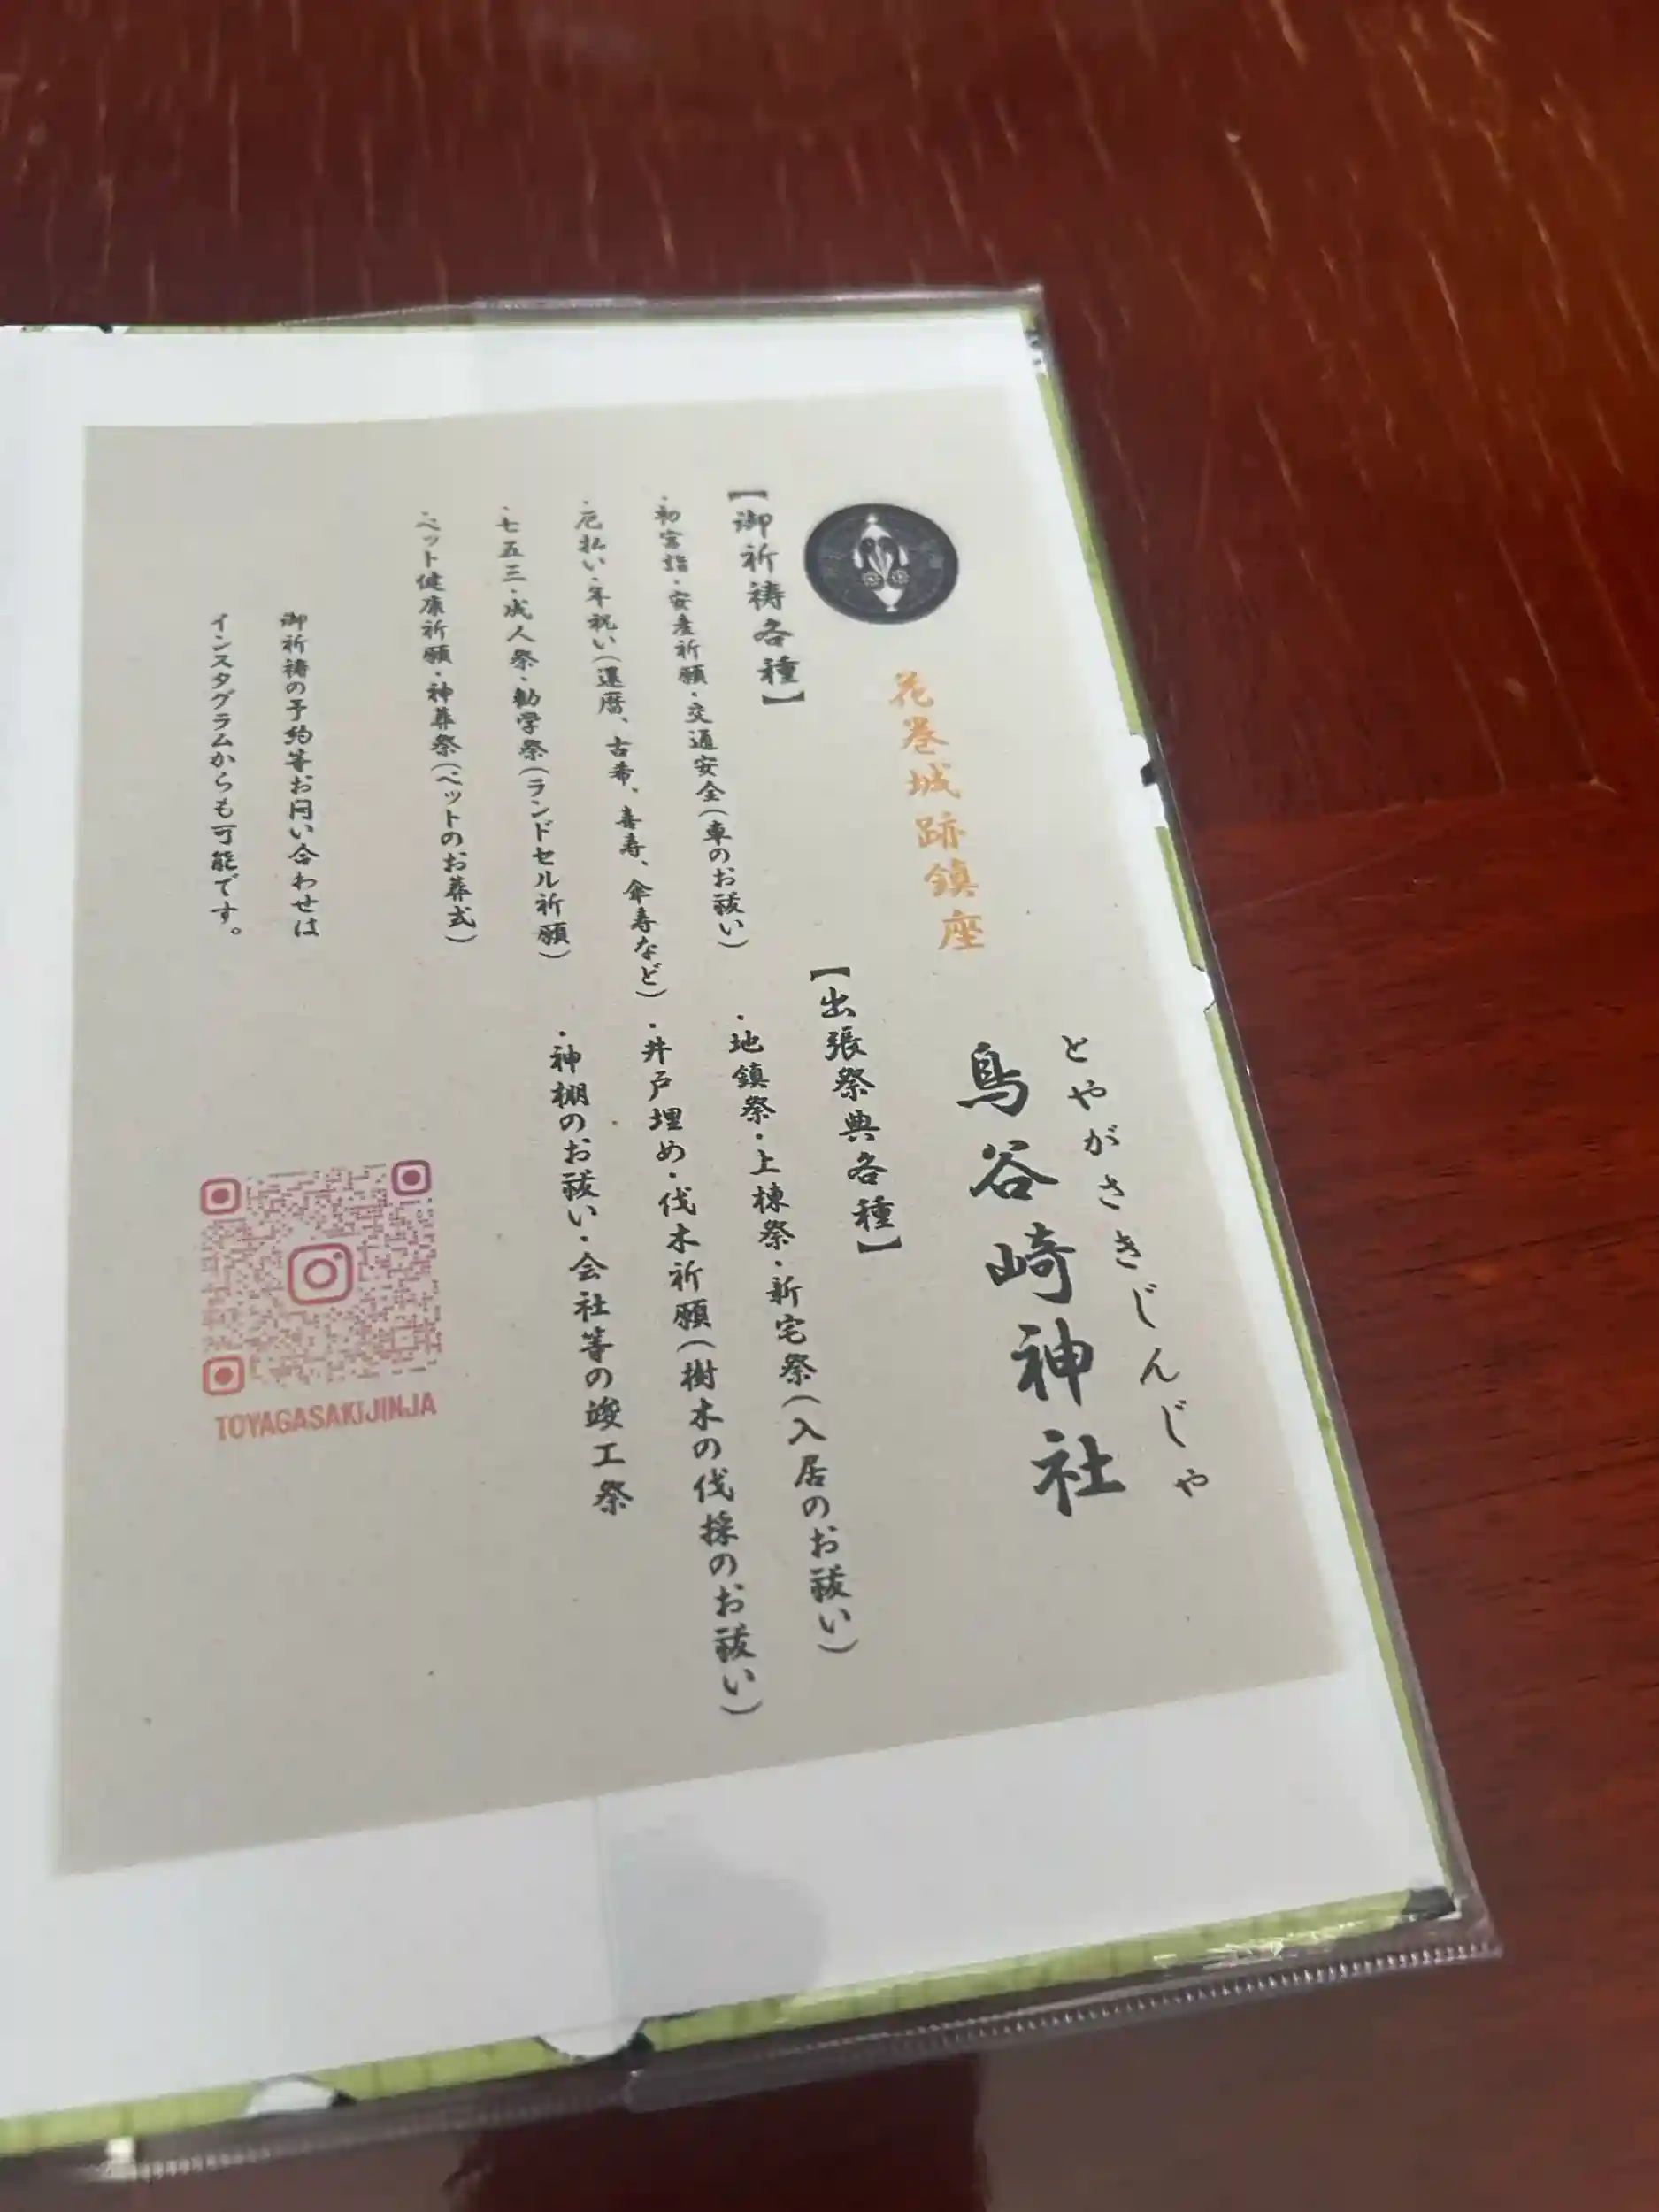 とやがさきじんじゃ
花巻城跡鎮座
鳥谷崎神社
【御祈祷各種】
・初宮詣・安産祈願・交通安全(車のお祓い)
・厄払い・年祝い(還暦、古希、喜寿、傘寿など)
・七五三・成人祭・勧学祭(ランドセル祈願)
・ペット健康祈願・神葬祭(ペットのお葬式)
【出張祭典各種】
・地鎮祭・上棟祭・新宅祭(入居のお祓い)
・井戸埋め・伐木祈願(樹木の伐採のお祓い)
・神棚のお祓い・会社等の竣工祭
御祈祷の予約等お問い合わせは
インスタグラムからも可能です。
TOYAGASAKIJINJA